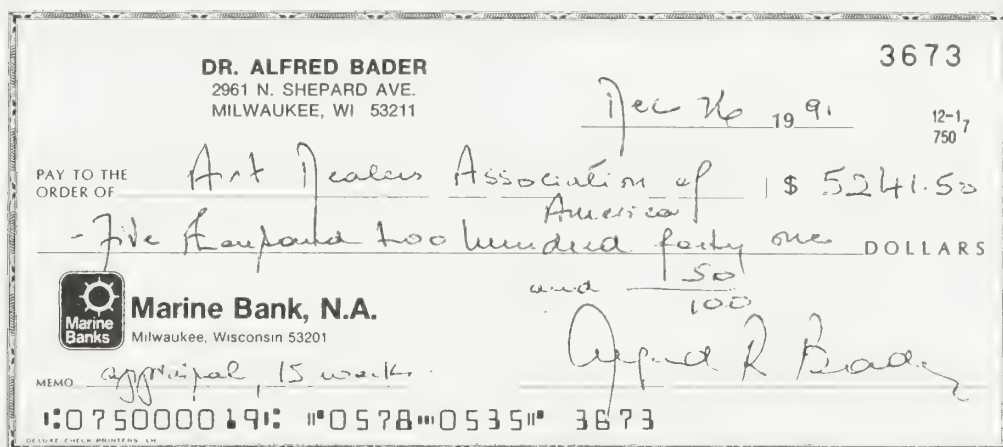 3673
DR. ALFRED BADER
2961 N. SHEPARD AVE.
MILWAUKEE, WI 53211
Dec 26 19 91
12-17
750
PAY TO THE ORDER OF Art Dealers Association of America $ 5241.50
- Five thousand two hundred forty one DOLLARS
and 50/100
Marine Banks
Marine Bank, N.A.
Milwaukee, Wisconsin 53201
Alfred R Bader
MEMO appraisal, 15 works
⑆075000019⑆ ⑈0578⑉0535⑈ 3673
DELUXE CHECK PRINTERS